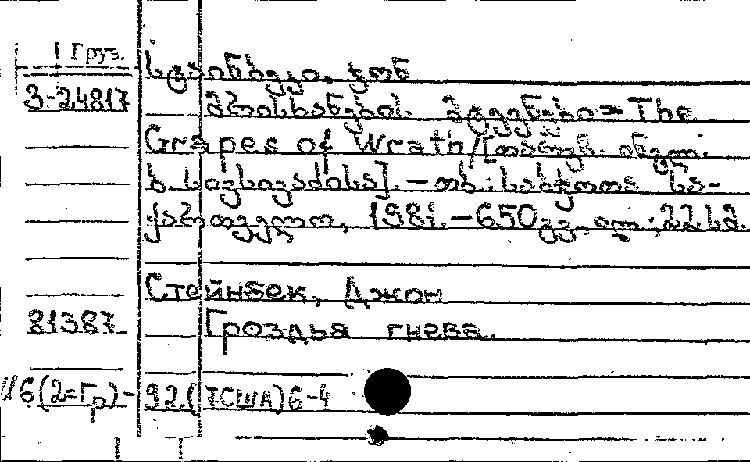 Груз.
სტაინბეკი, ჯონ
3-24817 მრისხანების მტევნები = The
Grapes of Wrath / [თარგმ. ინგლ.
საქართველო, 1981. – 650 გვ. ; 22 სმ.
Стейнбек, Джон
81387 Гроздья гнева.
И6(2=Гр)-92.(7США)6-4